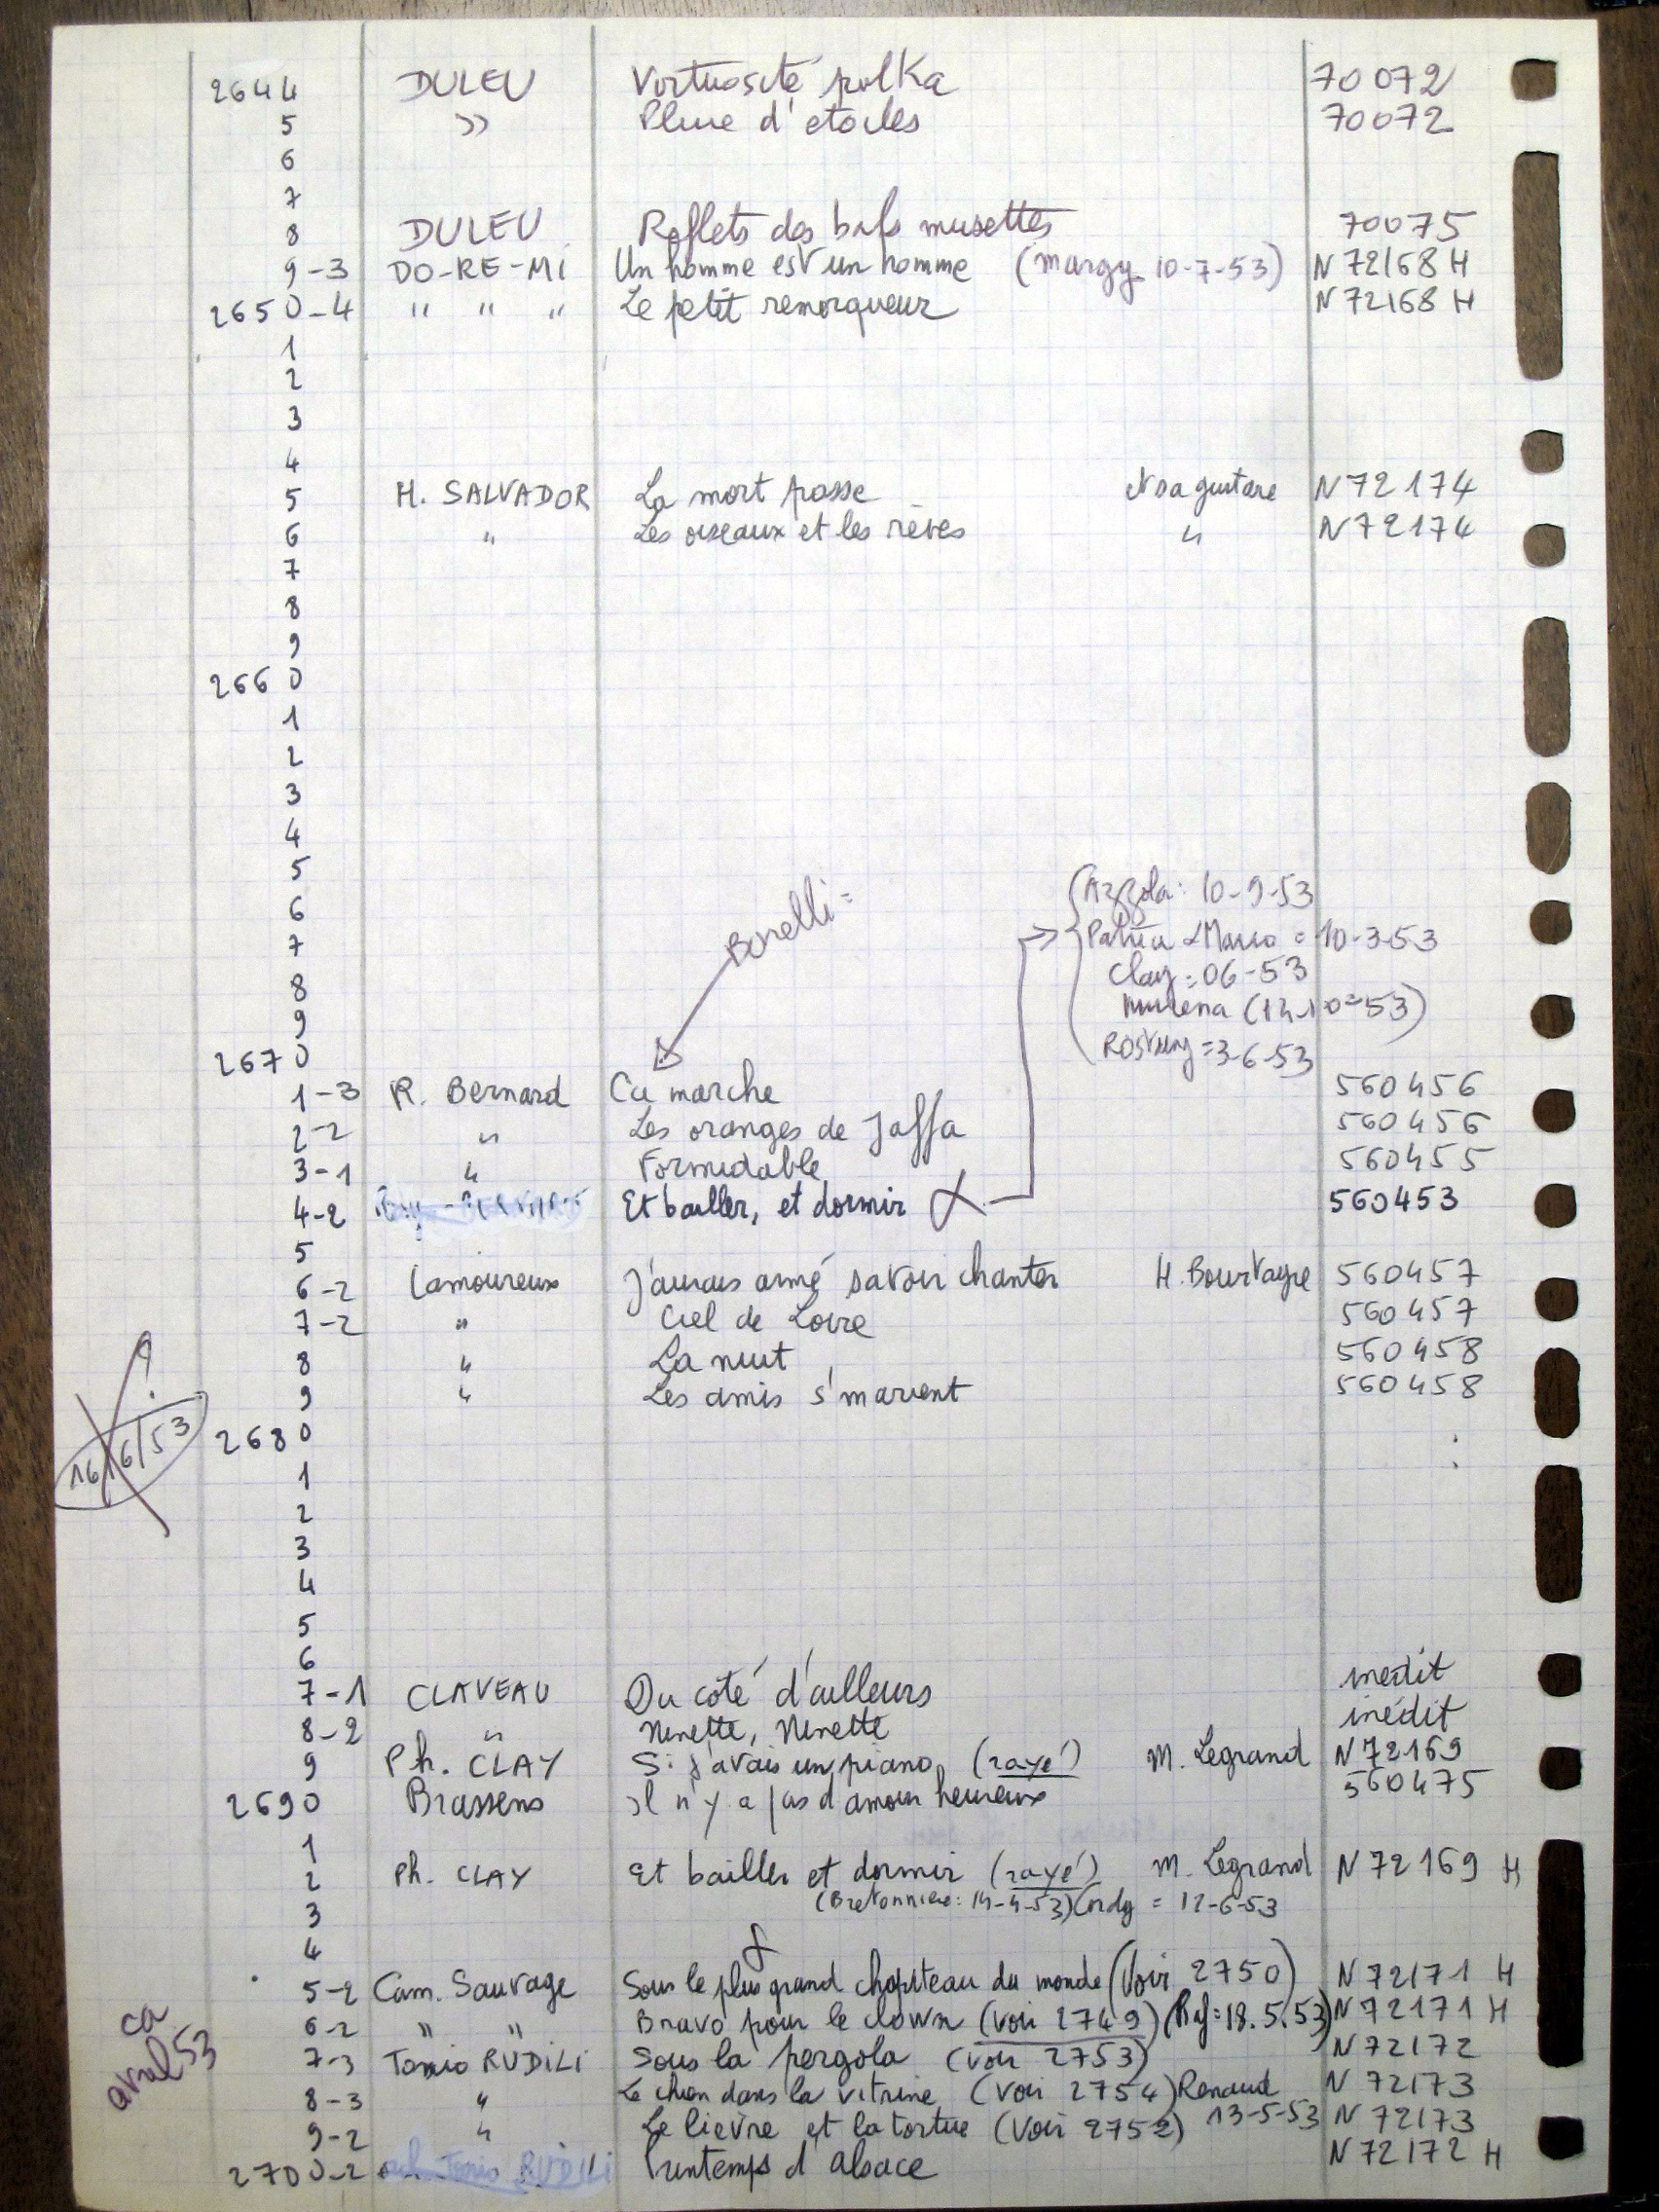 2644 DULEU Virtuosité polka 70072
5 » Pluie d'étoiles 70072
6
7
8 DULEU Reflets des bals musettes 70075
9-3 DO-RE-MI Un homme est un homme (Margy 10-7-53) N 72168 H
2650-4 " " " Le petit remorqueur N 72168 H
1
2
3
4
5 H. SALVADOR La mort passe N 72174
6 " Les oiseaux et les rêves " N 72174
7
8
9
2660
1
2
3
4
5
Azzola: 10-9-53
6
Borelli =
7 Patrice & Mario = 10-3-53
Clay = 06-53
8
(12-10-53)
9
Rostaing = 3-6-53
2670
1-3 R. Bernard Ca marche 560456
2-2 " Les oranges de Jaffa 560456
3-1 " Formidable 560455
4-2 Et bailler, et dormir 560453
5
6-2 Lamoureux J'aurais aimé savoir chanter H. Bourtayre 560457
7-2 " Ciel de Loire 560457
8 " La nuit 560458
?
9 " Les amis s'marient 560458
16/6/53
2680
1
2
3
4
5
6
7-1 CLAVEAU Du côté d'ailleurs inédit
8-2 " Ninette, Ninette inédit
9 Ph. CLAY Si j'avais un piano (rayé) M. Legrand N 72169
2690 Brassens il n'y a pas d'amour heureux 560475
1
2 Ph. CLAY Et bailler et dormir (rayé) M. Legrand N 72169 H
3 (Bretonnière: 14-4-53) (Cordy = 12-6-53
4
5-2 Cam. Sauvage Sous le plus grand chapiteau du monde (Voir 2750) N 72171 H
6-2 " " Bravo pour le clown (voir 2749) (Piaf = 18.5.53) N 72171 H
ca avril 53
7-3 Tonio RUDILI Sous la pergola (voir 2753) N 72172
8-3 " Le chien dans la vitrine (voir 2754) Renaud N 72173
9-2 " Le lièvre et la tortue (Voir 2752) 13-5-53 N 72173
2700-2 Tonio RUDILI Printemps d'alsace N 72172 H